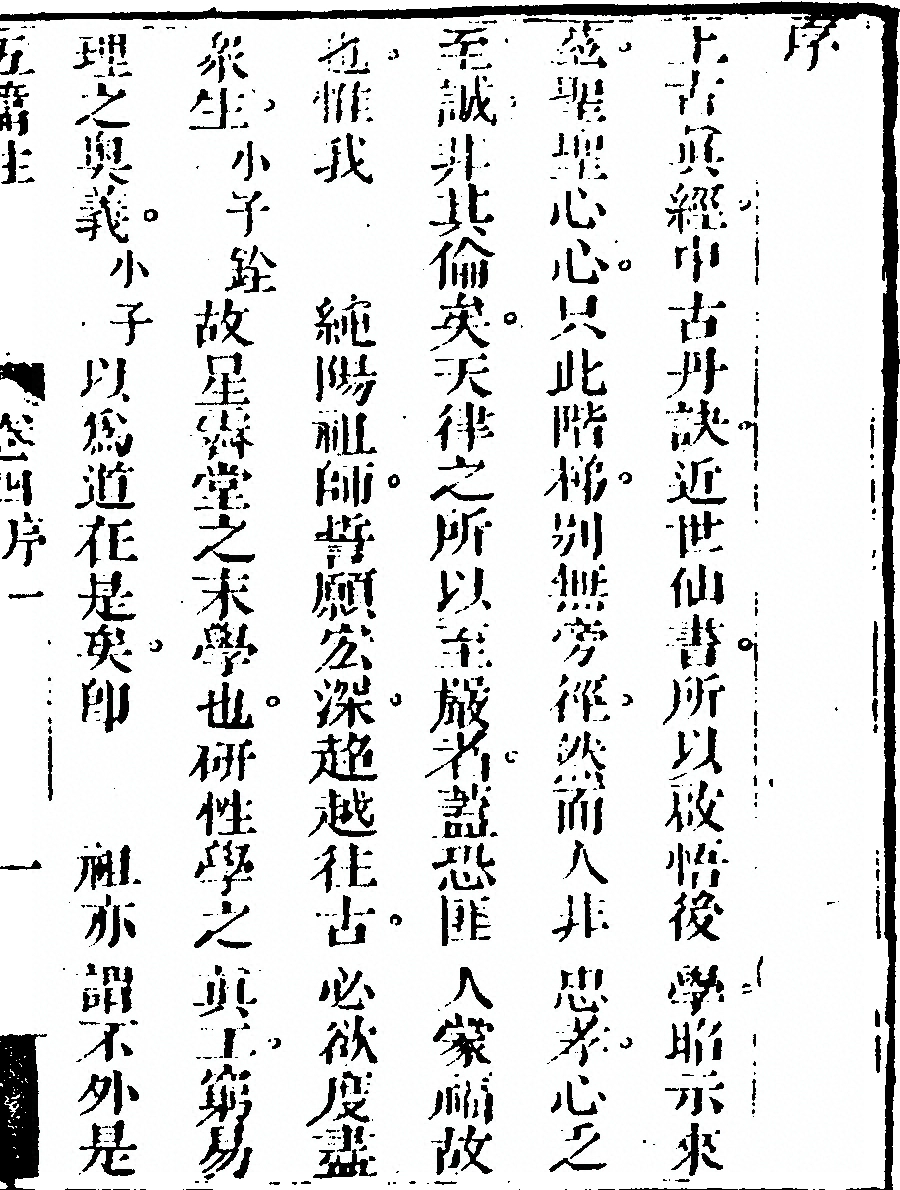 序
上古眞經中古丹訣近世仙書所以啟悟後學昭示來
茲聖聖心心只此階梯別無旁徑然而人非忠孝心乏
至誠非其倫矣天律之所以至嚴者蓋恐匪人蒙福故
也惟我 純陽祖師誓願宏深超越往古必欲度盡
衆生小子銓故星齋堂之末學也研性學之眞工窮易
理之奧義小子以爲道在是矣卽 祖亦謂不外是
卷四序 一 一